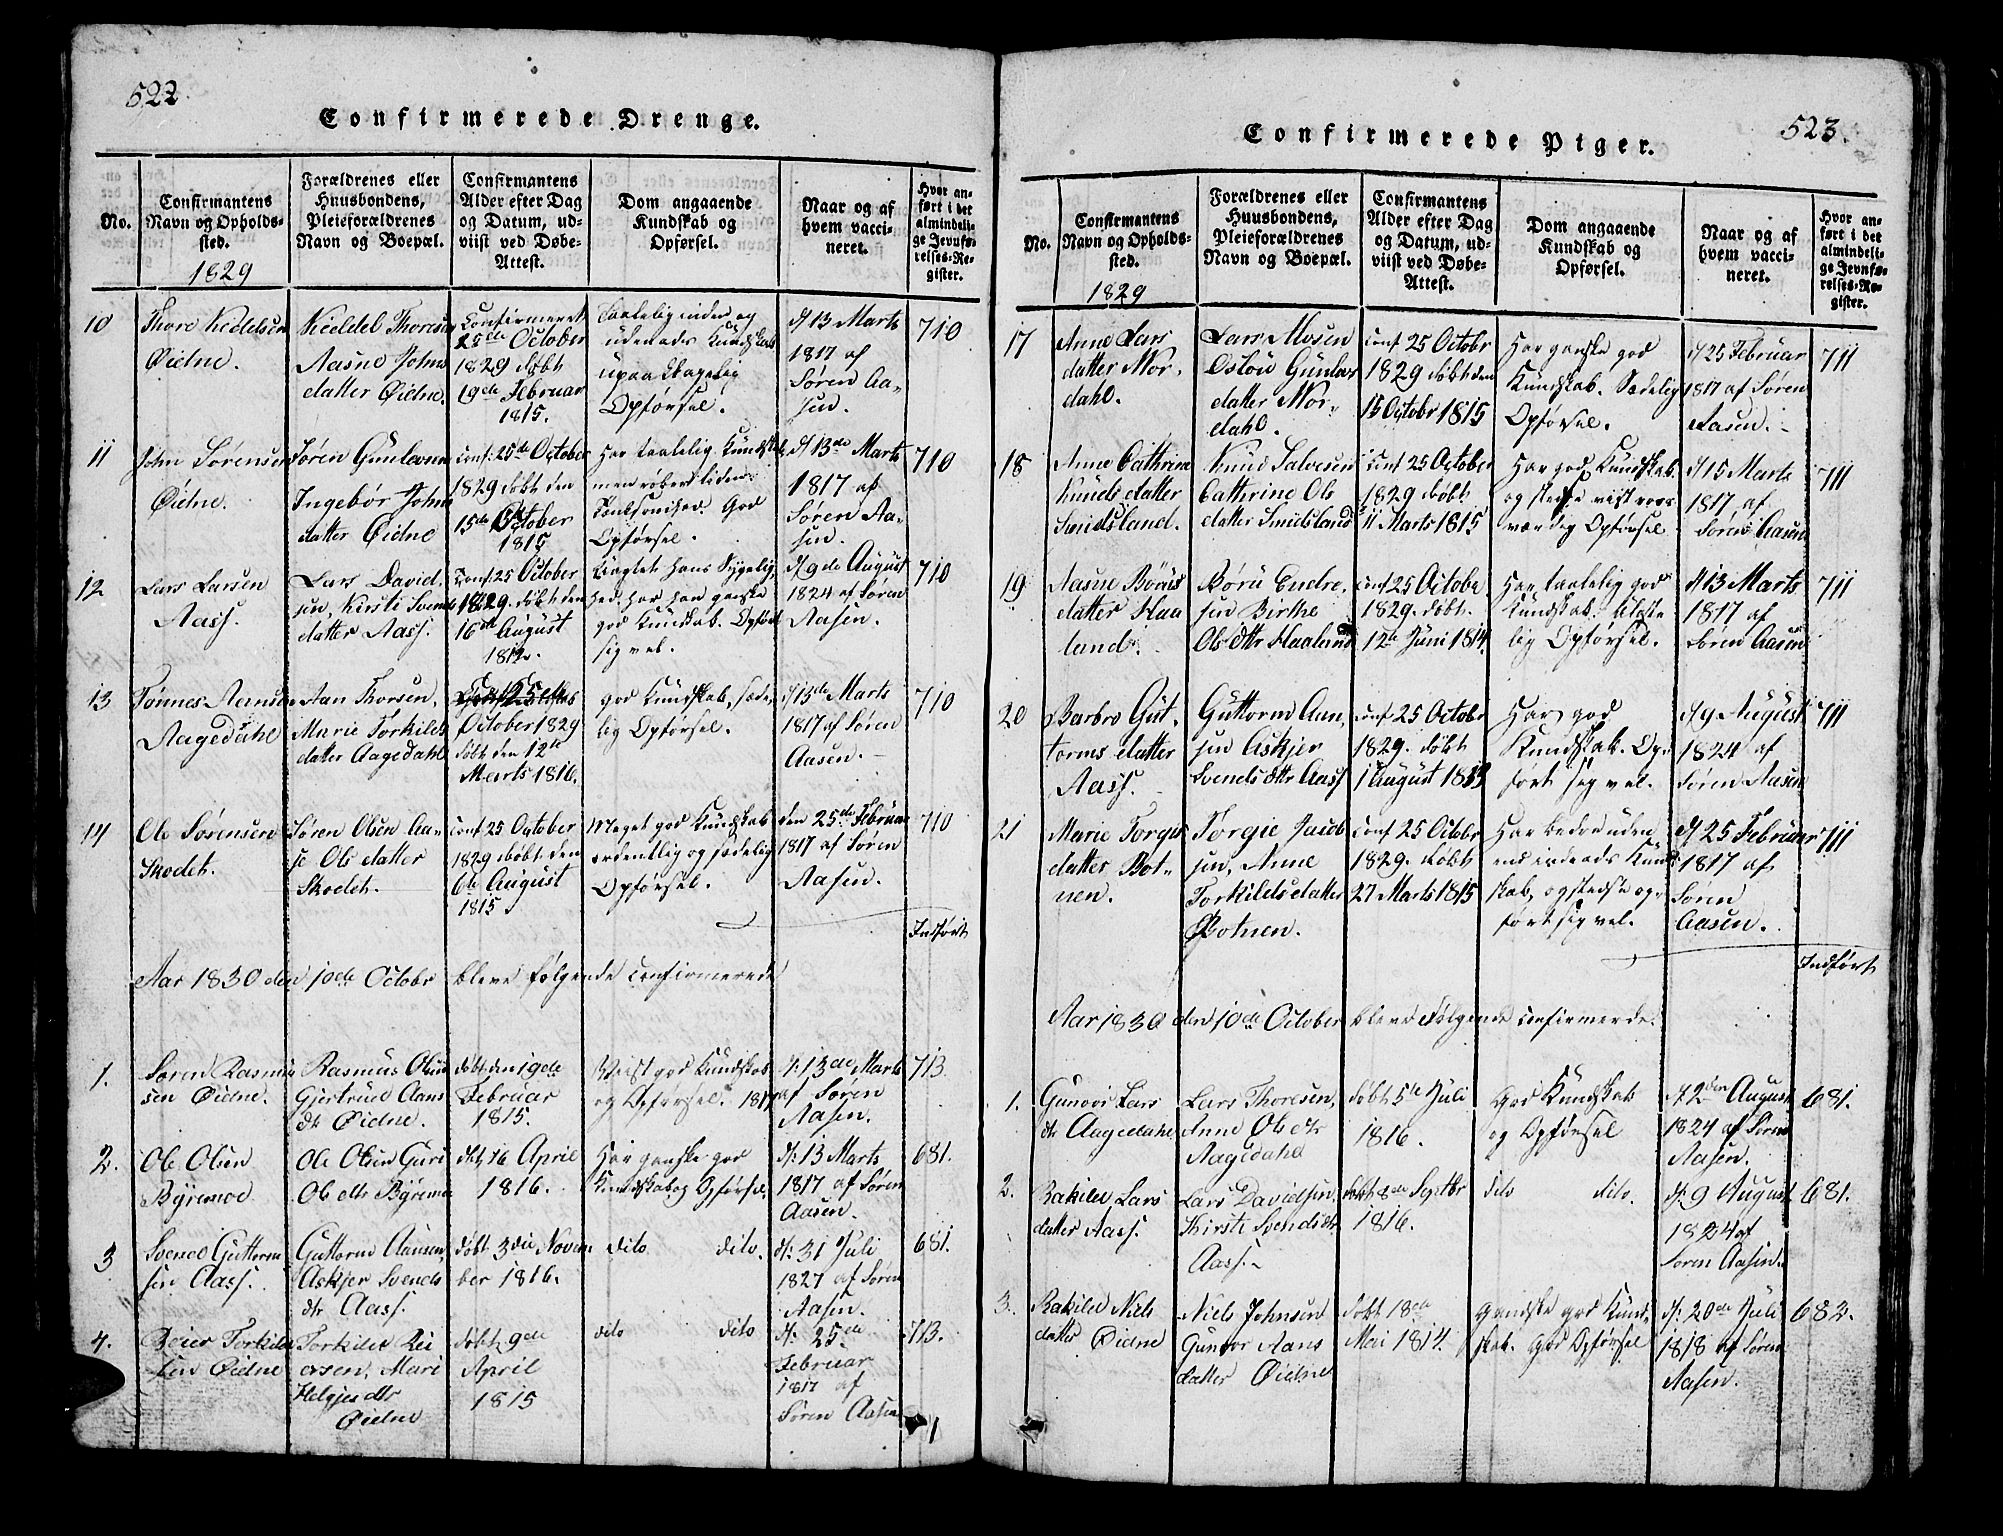 522.
Confirmerede Drenge.
No.
Confirmantens
Navn og Opholds-
sted.
1829
Forældrenes eller
Huusbondens,
Pleieforældrenes
Navn og Boepæl.
Confirmantens
Alder efter Dag
og Datum, ud-
viist ved Døbe-
Attest.
Dom angaaende
Kundskab og
Opførsel.
Naar og af
hvem vacci-
neret.
Hvor an-
ført i det
almindeli-
ge Jevnfø-
relses-Re-
gister.
10
Thore Kieldsen
Øidne.
Kieldel Thores
Aasne Johns
datter Øidne.
Confirmeret
25de October
1829 døbt
19de Februar
1815.
Taalelig inden og
udenads Kundskab
upaaklagelig
Opførsel.
d/13 Marts
1817 af
Søren Aa-
sen.
710
11
John Sørensen
Øidne.
Søren Gunlevsen
Ingebor Johns
datter Øidne
Conf: 25de October
1829 døbt den
15de October
1815
Har taalelig Kundskab
men røber liden
God
Opførsel.
d/13de Marts
1817 af
Søren Aa-
sen.
710
12
Lars Larsen
Aass.
Lars David-
sen, Kirsti Svends
datter Aass.
Conf 25 October
1829. døbt den
16de August
1812.
Uagtet hans Sygelig-
hed, har han ganske
god Kundskab. Opført
sig vel.
d/9de August
1824 af Søren
Aasen.
710
13
Tønnes Aansen
Aagedahl
Aan Thorsen,
Marie Torkilds
datter Aagedahl
Conf 25de
October 1829
døbt den 12te
Marts 1816.
god Kundskab, sæde-
lig Opførsel.
d/13de Marts
1817 af Søren
Aasen.
710
14
Ole Sørensen
Skodet.
Søren Olsen Aa-
se Ols datter
Skodet.
Conf 25 October
1829 døbt den
6te August
1815.
Meget god Kundskab
ordentlig og sædelig
Opførsel.
den 25de Februar
1817 af Søren
Aasen.
710
Indført
Aar 1830 den 10de Octobr bleve følgende confirmerede
1.
Søren Rasmus
sen Øidne.
Rasmus Olsen
Gjertrud Aans
dtr Øidne.
døbt den 19de
Februar
1815.
Meget god Kundskab
og Opførsel.
d: 13de Marts
1817 af Søren
Aasen.
713.
2.
Ole Olsen
Byremoe.
Ole Olsen Guri
Ols dtr Byremo
dbt 16 April
1816.
Har ganske god
Kundskab og Opførsel.
d: 13 Marts
1817 af Søren
Aasen.
681.
3
Svend Guttorm
sen Aass.
Guttorm Aansen,
Askjer Svends
dtr Aass.
døbt 3die Novem
ber 1816.
dito dito.
d: 31 Juli
1827 af Søren
Aasen.
681.
4.
Reier Torkild
sen Øidne
Torkild Rei
ersen, Mari
Helges dtr
Øidne
døbt 9de
April
1815
dito dito
d: 25de
Februar
1817 af
Søren Aasen
713.
523.
Confirmerede Piger.
No.
Confirmantens
Navn og Opholds-
sted.
1829
Forældrenes eller
Huusbondens,
Pleieforældrenes
Navn og Boepæl.
Confirmantens
Alder efter Dag
og Datum, ud-
viist ved Døbe-
Attest.
Dom angaaende
Kundskab og
Opførsel.
Naar og af
hvem vacci-
neret.
Hvor an-
ført i det
almindeli-
ge Jevnfø-
relses-Re-
gister.
17
Anne Lars
datter Mor-
dahl.
Lars Mosen
Ostou Gunlar
datter Mor-
dahl.
Conf 25 Octobr
1829 døbt den
15 Octobr 1815
Har ganske god
Kundskab. Sædelig
Opførsel.
d/25 Februar
1817 af Søren
Aasen.
711
18
Anne Cathrine
Knuds datter
Smidsland.
Knud Salvesen
Cathrine Ols
datter Smidsland
Conf 25 October
1829 døbt
11 Marts 1815
Har god Kundskab.
og stedse viist roes-
værdig Opførsel.
d/15 Marts
1817 af
Søren Aasen
711
19
Aasne Børus
datter Haa
land.
Børu Endre-
sen Birthe
Ols dttr Haaland
Conf 25 Octobe
1829. døbt.
12te Juni 1814.
Har taalelig god
Kundskab.
lig Opførsel.
d/13 Marts
1817 af
Søren Aasen
711
20
Barbro Gut-
torms datter
Aass.
Guttorm Aan-
sen Askjer
Svends dttr Aass
Conf 25 Octobr
1829. døbt
1 August 1813
Har god
Kundskab. Op-
ført sig vel.
d/9 August
1824 af
Søren Aasen
711
21
Marie Torgies
datter Bot-
nen.
Torgie Jacob
sen, Anne
Torkildsdatter
Botnen.
Conf 25 Octobr
1829. døbt
27 Marts 1815
Har bedre uden
end indenads Kund-
skab, og stedse op-
ført sig vel.
d/25 Februar
1817 af
Søren
Aasen.
711
Indført
Aar 1830 den 10de October bleve følgende confirmerede.
1.
Gunovr Lars
dtr Aagedahl
Lars Thoresen,
Anne Ols dtr
Aagedahl
døbt 5te Juli
1816.
God Kundskab
og Opførsel
d. 2den August
1824 af Søren
Aasen.
681.
2.
Rakild Lars
datter Aass.
Lars Davidsen,
Kirsti Svendsdtr
Aass.
døbt 8de Septbr
1816.
dito dito.
d: 9 August
1824 af
Søren Aasen.
681.
3.
Rakild Niels
datter Øidne
Niels Johnsen
Gunvor Aans
datter Øidne
døbt 18de
Mai 1814.
ganske god Kund-
skab. god Opførsel
d: 20de Juli
1818 af Søren
Aasen.
682.